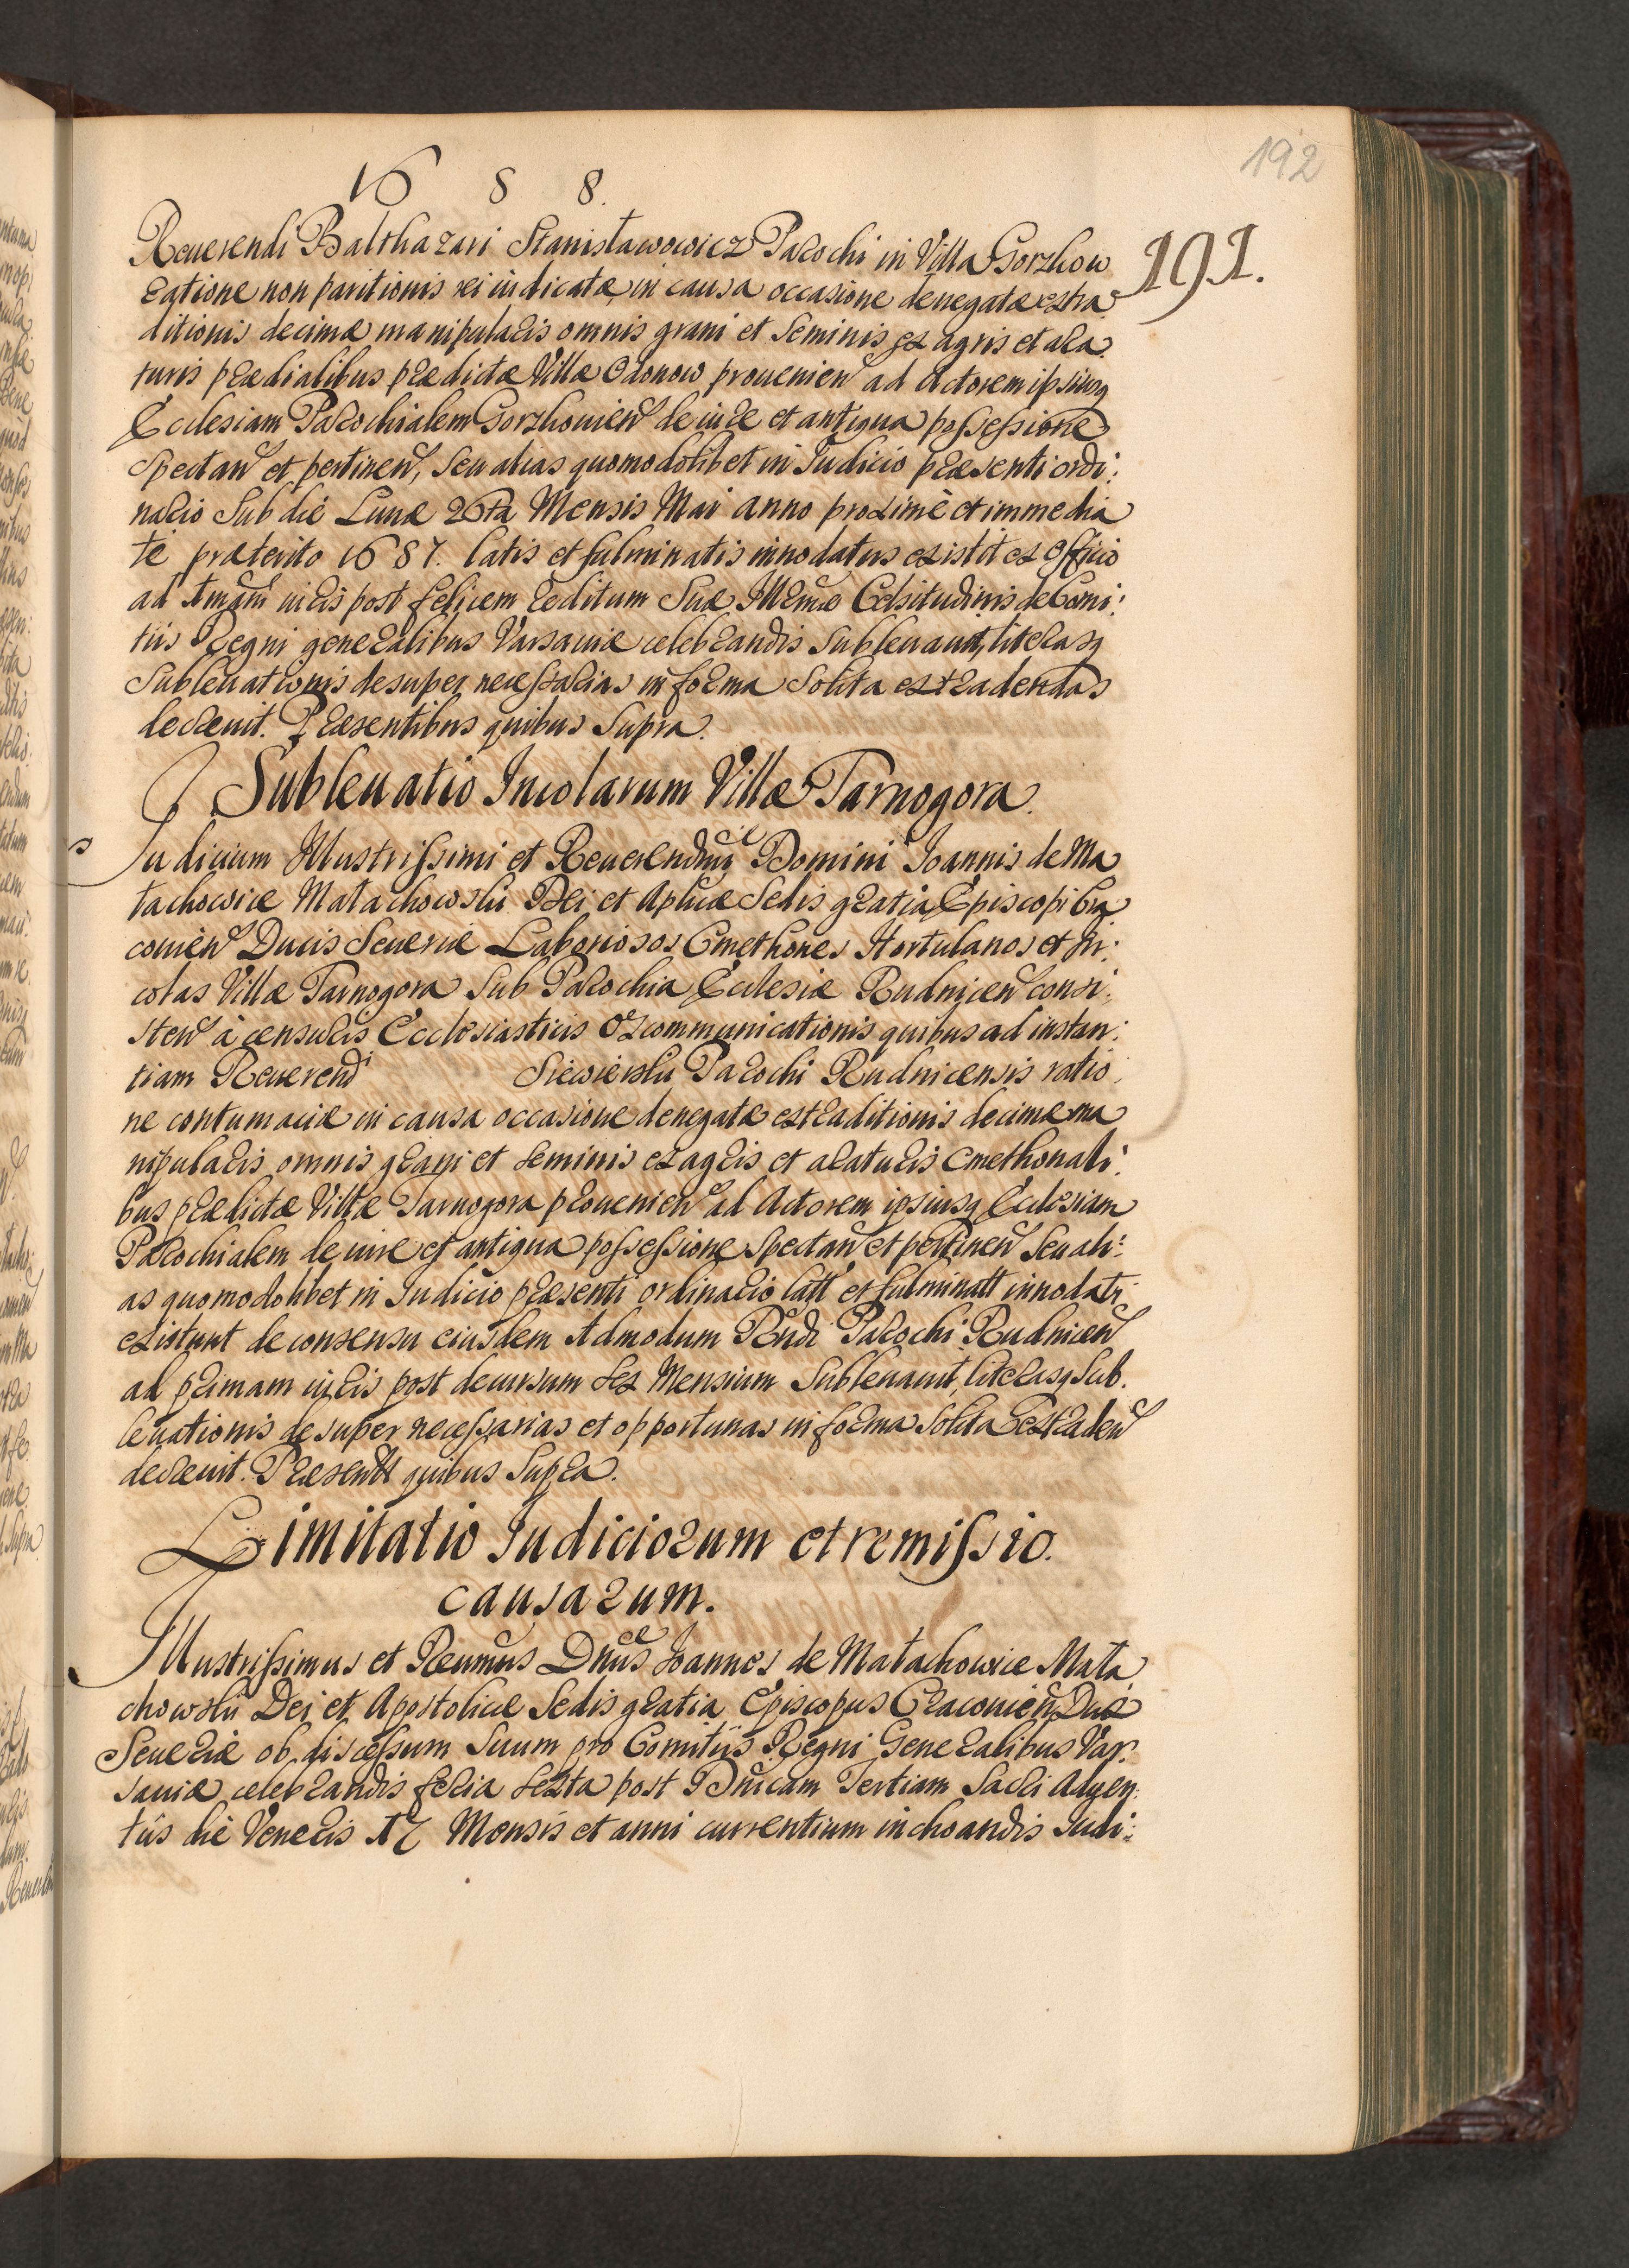 192
1688.
191.
Reuerendi Balthazari Stanisławowicz Parochi in Villa Gorzkow
ratione non paritionis rei iudicatæ in causa occasione denegatæ extra
ditionis decimæ manipularis omnis grani et seminis ex agris et ara
turis prædialibus prædictæ Villæ Odonow prouenien ad Actorem ipsiusq
Ecclesiam Parochialem Gorzkouien de iure et antiqua possessione
spectan et pertinen, seu alias quomodolibet in Iudicio præsenti ordi:
nario sub die Lunæ 26ta Mensis Mai anno proximè et immedia
tè præterito 1687. latis et fulminatis innodatus existit ex Officio
ad 1mam iuris post felicem reditum Suæ Illmæ Celsitudinis de Comi:
tiis Regni generalibus Varsauiæ celebrandis subleuauit, literasq
subleuationis desuper necessarias in forma solita extradendas
decreuit. Præsentibus quibus supra.
Subleuatio Incolarum Villæ Tarnogora.
Iudicium Illustrissimi et Reuerendmi Domini Ioannis de Ma
łachowice Małachowski Dei et Aplicæ Sedis gratia Episcopi Cra
couien Ducis Seueriæ Laboriosos Cmethones Hortulanos et In:
colas Villæ Tarnogora sub Parochia Ecclesiæ Rudnicen consi:
sten à censuris Ecclesiasticis excommunicationis quibus ad instan:
tiam Reuerendi Siewierski Parochi Rudnicensis ratio
ne contumaciæ in causa occasione denegatæ extraditionis decimæ ma
nipularis omnis grani et seminis ex agris et araturis Cmethonali:
bus prædictæ Villæ Tarnogora prouenien ad Actorem ipsiusq Ecclesiam
Parochialem de iure et antiqua possessione spectan et pertinen seu ali:
as quomodolibet in Iudicio præsenti ordinario latt et fulminatt innodati
existunt de consensu eiusdem Admodum Rndi Parochi Rudnicen
ad primam iuris post decursum sex Mensium subleuauit, literasq sub
leuationis desuper necessarias et opportunas in forma solita extraden
decreuit. Præsentt quibus supra.
Limitatio Iudiciorum et remissio
causarum.
Illustrissimus et Reumus Dnus Ioannes de Małachowice Mała
chowski Dei et Apostolicæ Sedis gratia Episcopus Cracouien Dux
Seueriæ ob discessum suum pro Comitiis Regni Generalibus Var
sauiæ celebrandis feria sexta post Dnicam Tertiam Sacri Aduen
tûs die Veneris 17 Mensis et anni currentium inchoandis Iudi: